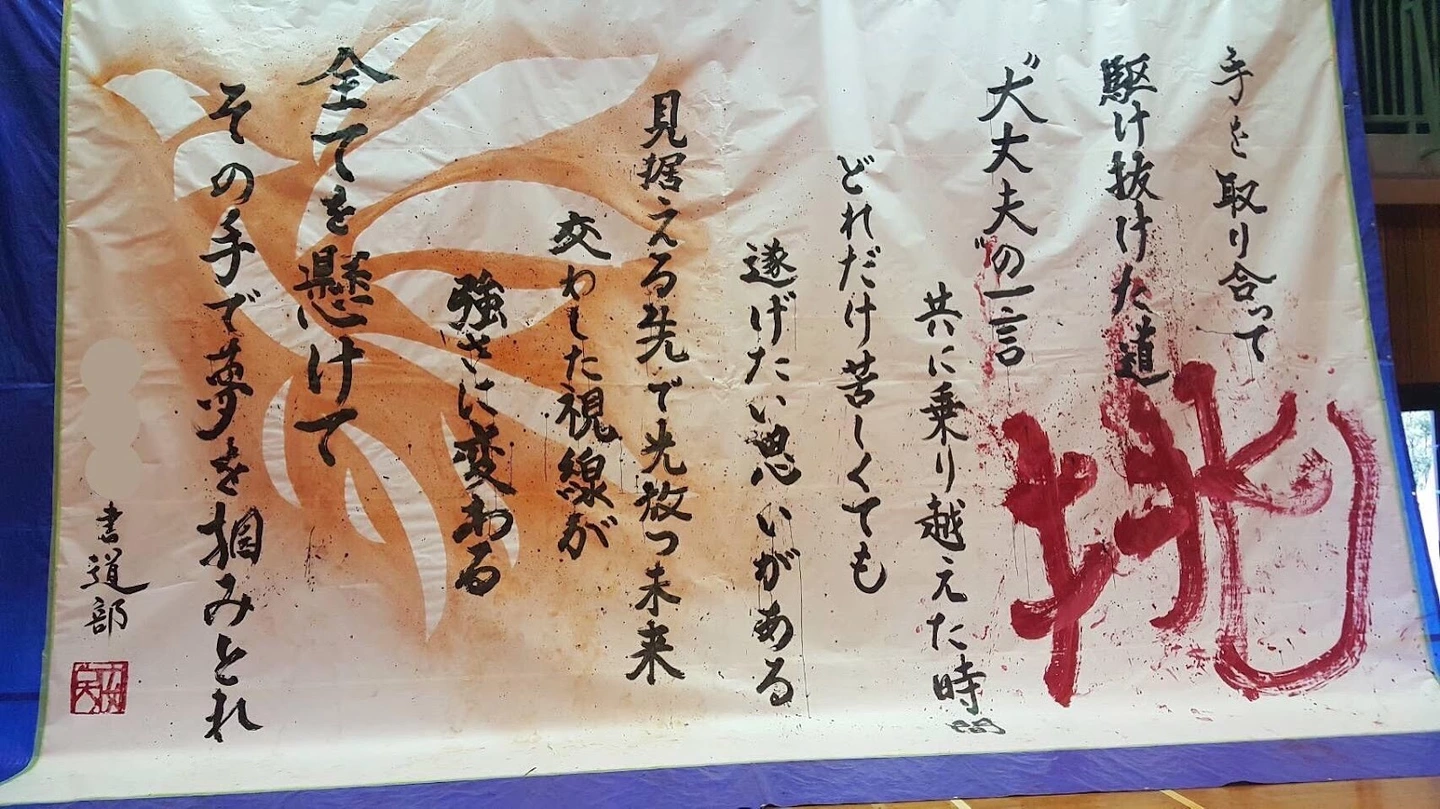 挑
手を取り合って
駆け抜けた道
"大丈夫"の一言
共に乗り越えた時間
どれだけ苦しくても
遂げたい思いがある
見据える先で光放つ未来
交わした視線が
強さに変わる
全てを懸けて
その手で夢を掴みとれ
書道部